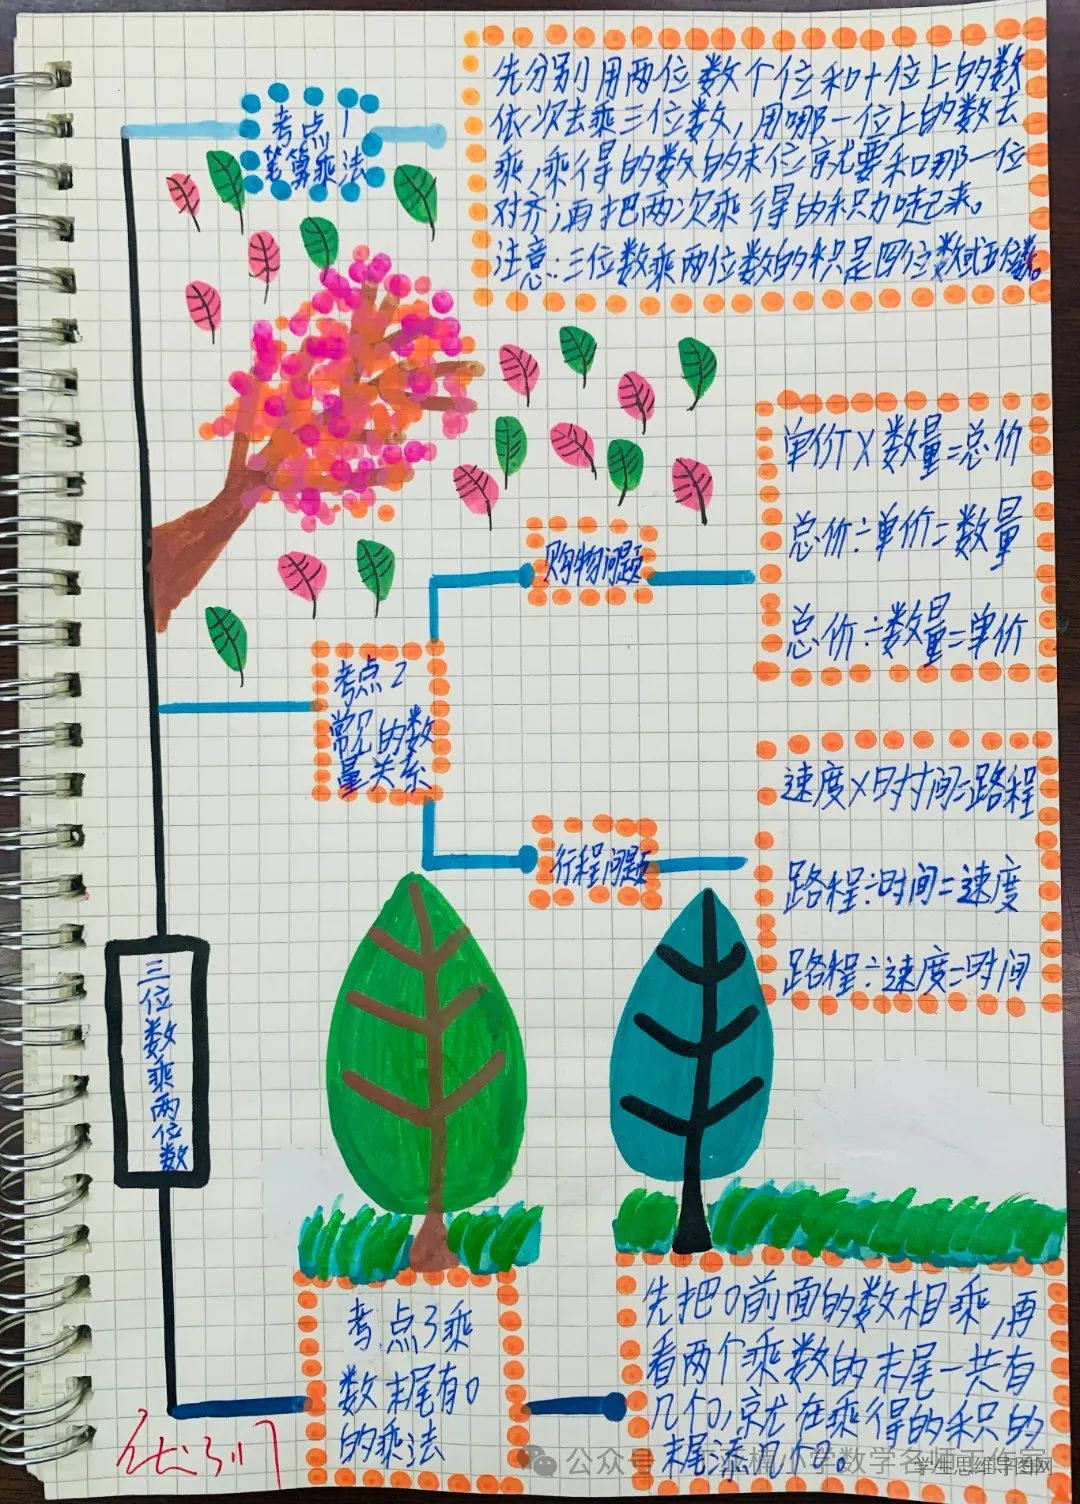 考点1
笔算乘法
先分别用两位数个位和十位上的数
依次去乘三位数,用哪一位上的数去
乘,乘得的数的末位就要和那一位
对齐;再把两次乘得的积加起来。
注意:三位数乘两位数的积是四位数或五位数。
考点2
常见的数
量关系
购物问题
单价×数量=总价
总价÷单价=数量
总价÷数量=单价
行程问题
速度×时间=路程
路程÷时间=速度
路程÷速度=时间
三位数乘两位数
考点3乘
数末尾有0
的乘法
先把0前面的数相乘,再
看两个乘数的末尾一共有
几个0,就在乘得的积的
末尾添几个0。
公众号
小学数学名师工作室
学生思维导图网